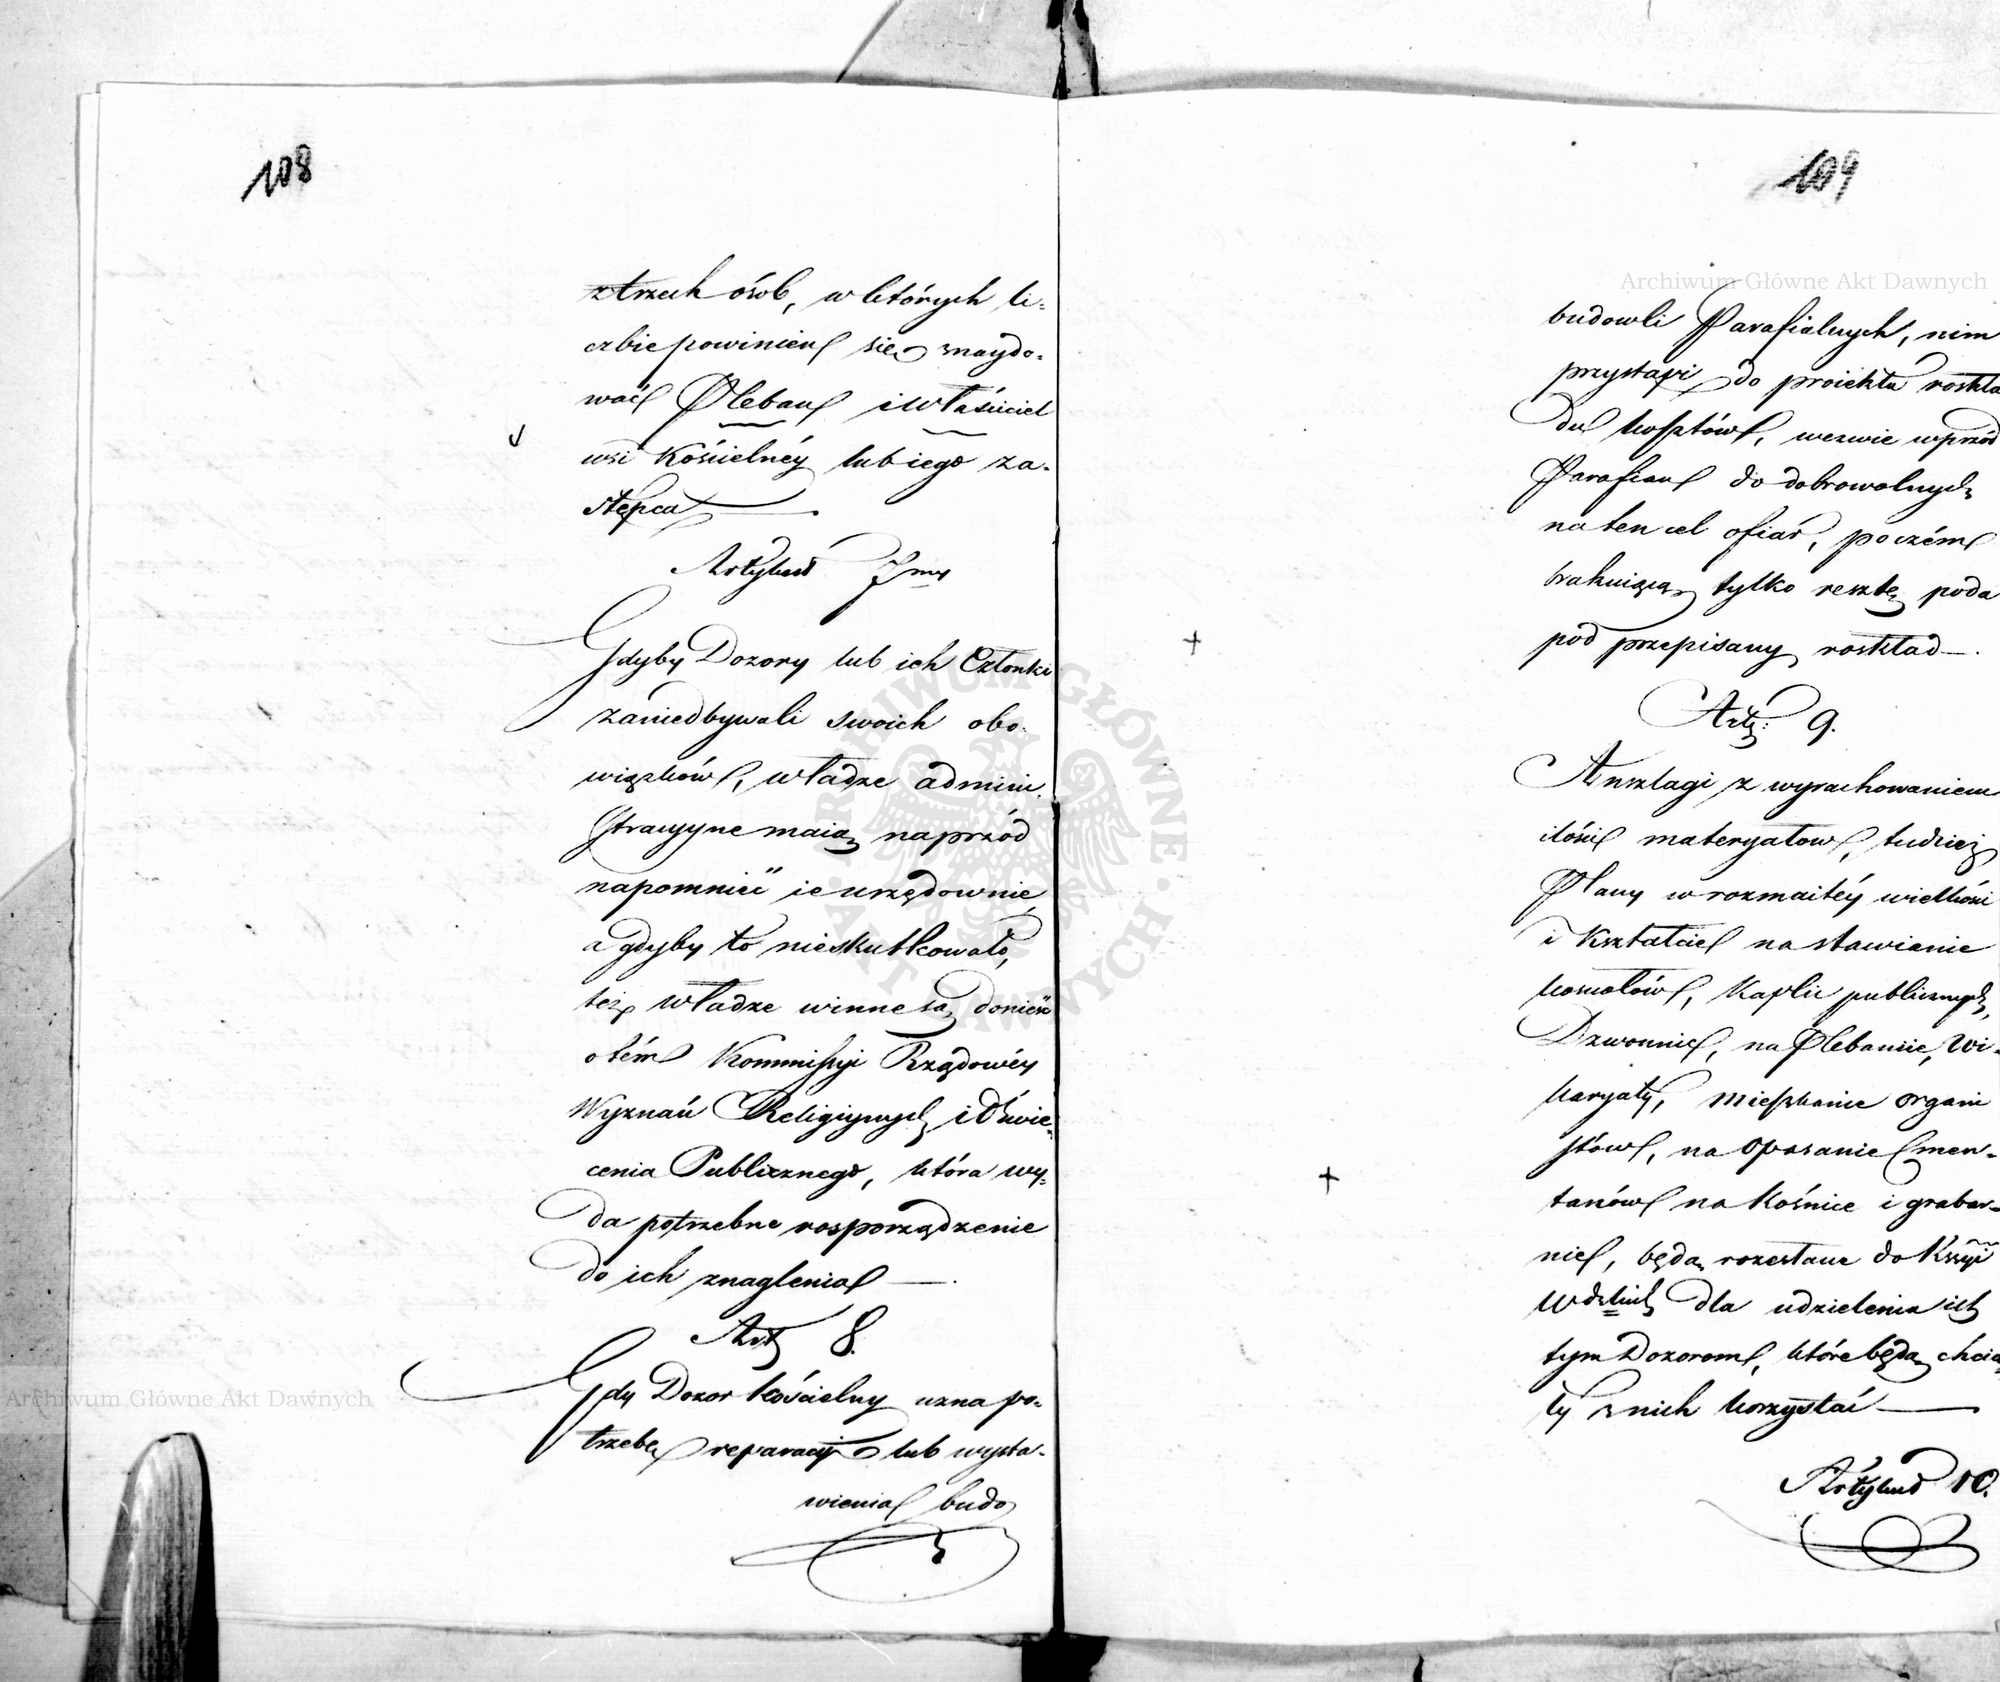 108
z trzech osób, w których li-
czbie powinien się znaydo-
wać Pleban i właściciel
wsi Kościelnéy lub iego za-
stępca
Artykuł 7my
Gdyby Dozory lub ich Członki
zaniedbywali swoich obo-
wiązków, władze admini-
stracyyne maią naprzód
napomnieć ie urzędownie,
a gdyby to nieskutkowało,
też władze winne są donieść
o tém Kommissyi Rządowéy
Wyznań Religiynych i Oświe-
cenia Publicznego, która wy-
da potrzebne rosporządzenie
do ich znaglenia
Art 8.
Gdy Dozor Kościelny uzna po-
trzebę reparacyi lub wysta-
wienia budo
109
Archiwum Główne Akt Dawnych
budowli Parafialnych, nim
przystąpi do proiektu roskła
du kosztów, wezwie wprzód
Parafian do dobrowolnych
na ten cel ofiar, poczém
brakuiącą tylko resztę poda
pod przepisany roskład
Art: 9.
Anszlagi z wyrachowaniem
ilości materyałow, tudzież
Plany w rozmaitéy wielkości
i kształcie na stawianie
kosciołów, kaplic publicznych,
Dzwonnic, na Plebanie, Wi-
karyaty, mieszkanie organi
stów, na opasanie Cmen-
tarzów na kośnice i grabar-
nie, będą rozesłane do Kssyi
Wdzkich dla udzielenia ich
tym Dozorom, które będą chcia
ły z nich korzystać
Artykuł 10.
Archiwum Główne Akt Dawnych
ARCHIWUM GŁÓWNE AKT DAWNYCH